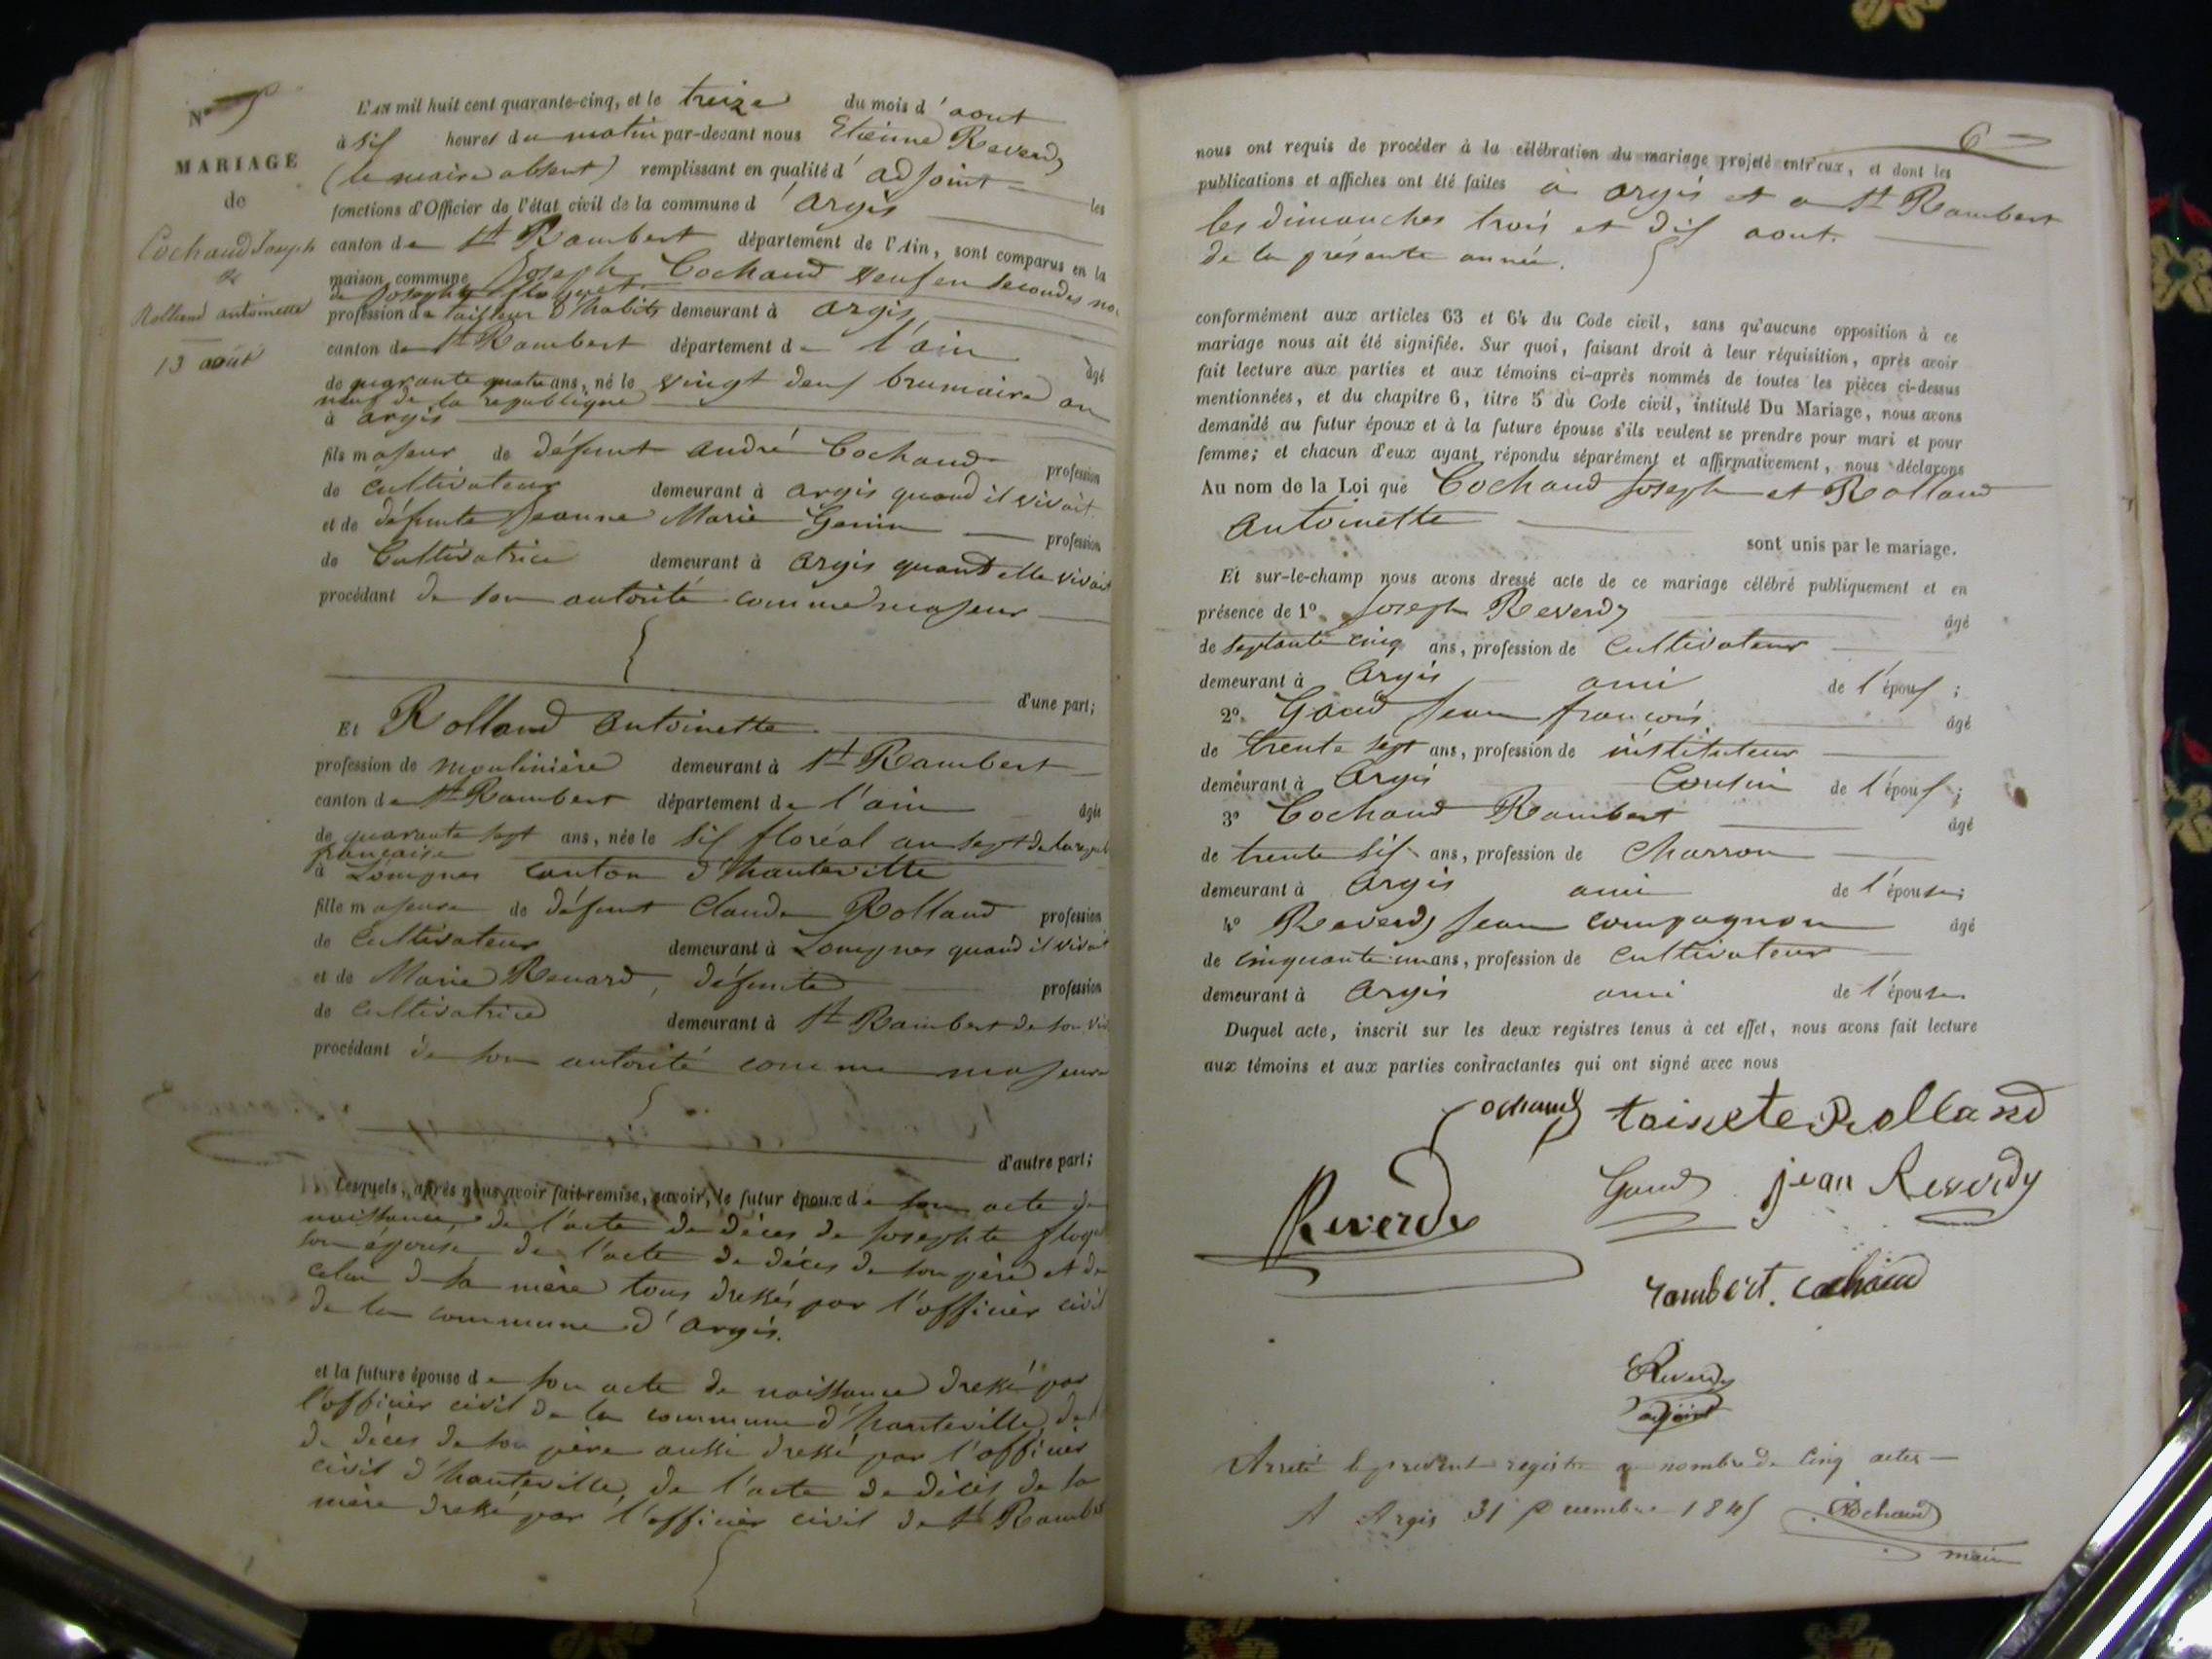 N° 5
MARIAGE
de
Cochaud Joseph
&
Rolland antoinette
13 août
L'AN mil huit cent quarante-cinq, et le treize du mois d'aout
à six heures du matin par-devant nous Etienne Reverdy
(le maire absent) remplissant en qualité d'adjoint les
fonctions d'Officier de l'état civil de la commune d'argis
canton de St Rambert département de l'Ain, sont comparus en la
maison commune Joseph Cochaud veuf en secondes
de Josephte
profession de tailleur d'habits demeurant à argis
canton de St Rambert département de l'ain âgé
de quarante quatre ans, né le vingt deux brumaire an
neuf de la republique
à argis
fils majeur de défunt andré Cochaud profession
de cultivateur demeurant à argis quand il vivait
et de défunte Jeanne Marie Genin profession
de Cultivatrice demeurant à argis quand elle vivait
procédant de son autorité comme majeur
d'une part;
Et Rolland antoinette
profession de moulinière demeurant à St Rambert
canton de St Rambert département de l'ain âgée
de quarante sept ans, née le six floréal an sept de la
française
à Lompnes canton d'hauteville
fille majeure de défunt Claude Rolland profession
de cultivateur demeurant à Lompnes quand il vivait
et de Marie Renard, défunte profession
de cultivatrice demeurant à St Rambert de son
procédant de son autorité comme majeure
d'autre part;
Lesquels, après nous avoir fait remise, savoir, le futur époux de son acte de
naissance, de l'acte de décès de Josephte
son épouse, de l'acte de décès de son père et de
celui de sa mère tous dressés par l'officier civil
de la commune d'argis.
et la future épouse de son acte de naissance dressé par
l'officier civil de la commune d'hauteville,
de décès de son père aussi dressé par l'officier
civil d'hauteville, de l'acte de décès de sa
mère dressé par l'officier civil de St Rambert
6
nous ont requis de procéder à la célébration du mariage projeté entr'eux, et dont les
publications et affiches ont été faites à argis et a St Rambert
les dimanches trois et dix aout
de la présente année.
conformément aux articles 63 et 64 du Code civil, sans qu'aucune opposition à ce
mariage nous ait été signifiée. Sur quoi, faisant droit à leur réquisition, après avoir
fait lecture aux parties et aux témoins ci-après nommés de toutes les pièces ci-dessus
mentionnées, et du chapitre 6, titre 5 du Code civil, intitulé Du Mariage, nous avons
demandé au futur époux et à la future épouse s'ils veulent se prendre pour mari et pour
femme; et chacun d'eux ayant répondu séparément et affirmativement, nous déclarons
Au nom de la Loi que Cochaud Joseph et Rolland
antoinette
sont unis par le mariage.
Et sur-le-champ nous avons dressé acte de ce mariage célébré publiquement et en
présence de 1° Joseph Reverdy âgé
de septante cinq ans, profession de cultivateur
demeurant à argis ami de l'époux;
2° Gaud Jean françois âgé
de trente sept ans, profession de instituteur
demeurant à argis Cousin de l'époux;
3° Cochaud Rambert âgé
de trente six ans, profession de charron
demeurant à argis ami de l'épouse;
4° Reverdy Jean compagnon âgé
de cinquante un ans, profession de cultivateur
demeurant à argis ami de l'épouse
Duquel acte, inscrit sur les deux registres tenus à cet effet, nous avons fait lecture
aux témoins et aux parties contractantes qui ont signé avec nous
Cochaud toinete Rolland
Reverdy Gaud jean Reverdy
rambert. cochaud
Reverdy
adjoint
Arreté le present registre au nombre de Cinq actes
A Argis 31 Decembre 1845 Cochaud
maire